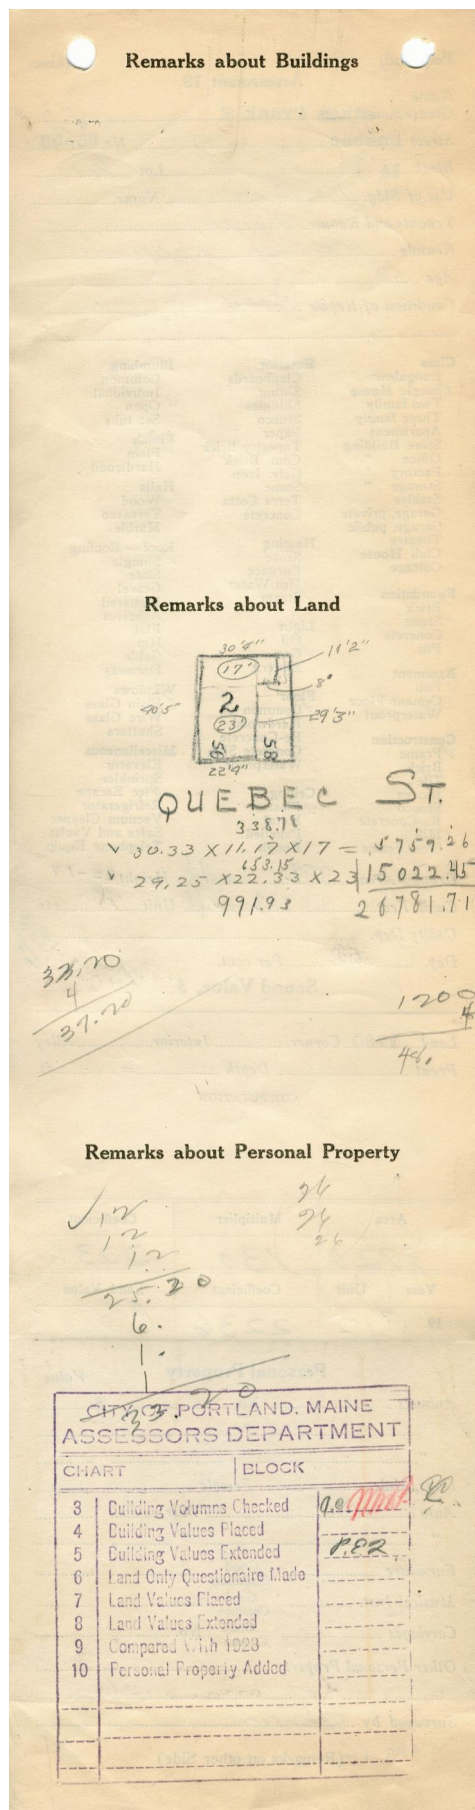 Remarks about Buildings
Remarks about Land
30'4"
11'2"
17'
8"
2
40'5"
23'
29'3"
56
58
22'4"
QUEBEC ST.
338.78
✓ 30.33 X 11.17 X 17 = 5759.26
653.15
✓ 29.25 X 22.33 X 23 15022.45
991.93 26781.71
33.20
4
37.20
1200
4
48.
Remarks about Personal Property
26
26
26
✓12
12
1.2
25.20
6.
1.
1
33.20
CITY OF PORTLAND, MAINE
ASSESSORS DEPARTMENT
CHART BLOCK
3 Building Volumns Checked
4 Building Values Placed
5 Building Values Extended P.E.R.
6 Land Only Questionaire Made
7 Land Values Placed
8 Land Values Extended
9 Compared With 1923
10 Personal Property Added